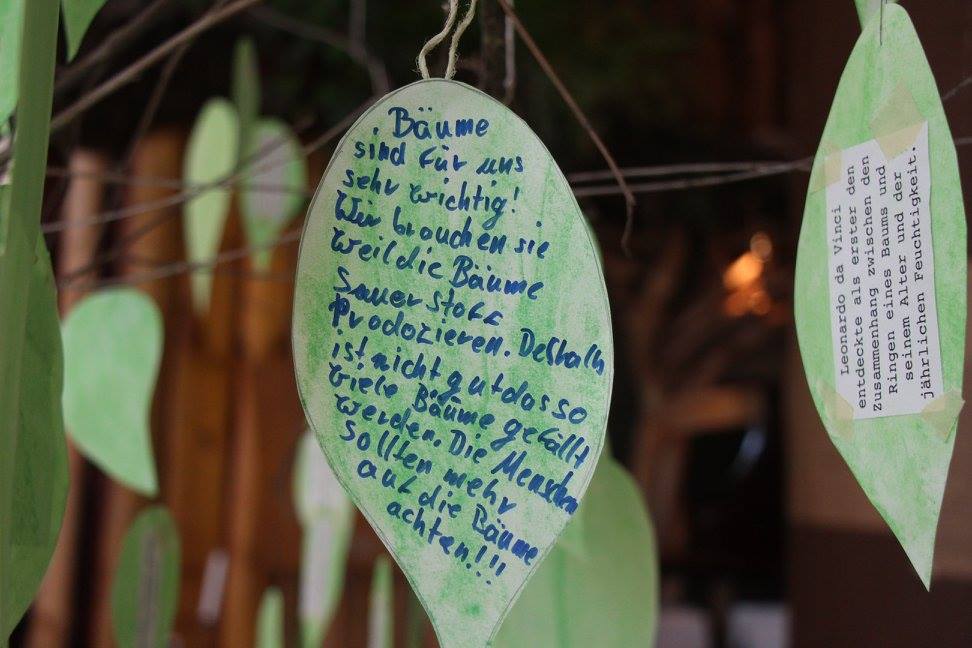 Bäume
sind für uns
sehr wichtig!
Wir brauchen sie
weil die Bäume
Sauerstoff
Prodozieren. Deshalb
ist nicht gut das so
viele Bäume gefällt
werden. Die Menschen
sollten mehr
auf die Bäume
achten!!!
Leonardo da Vinci
entdeckte als erster den
Zusammenhang zwischen den
Ringen eines Baums und
seinem Alter und der
jährlichen Feuchtigkeit.